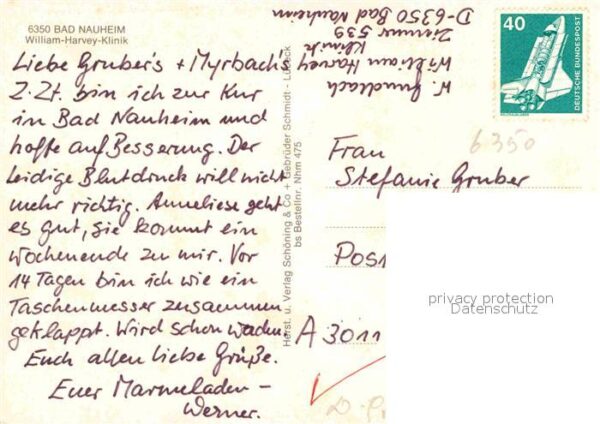 6350 BAD NAUHEIM
William-Harvey-Klinik
Liebe Gruber's + Myrbachs
Z. Zt. bin ich zur Kur
in Bad Nauheim und
hoffe auf Besserung. Der
leidige Blutdruck will nicht
mehr richtig. Anneliese geht
es gut, sie kommt ein
Wochenende zu mir. Vor
14 Tagen bin ich wie ein
Taschenmesser zusammen
geklappt. Wird schon werden.
Euch allen liebe Grüße.
Euer Marmeladen-
Werner.
Horst. u. Verlag Schöning & Co + Gebrüder Schmidt - Lübeck
bs Bestellnr. Nhm 475
W. Gundlach
William Harvey
Klinik
Zimmer 539
D-6350 Bad Nauheim
40
DEUTSCHE BUNDESPOST
6350
Frau
Stefanie Gruber
Post
A 3011
privacy protection
Datenschutz